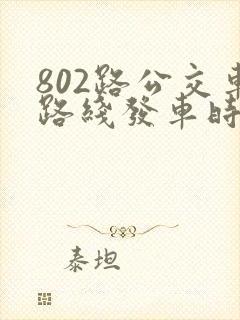 802路公交車
路綫發車時
泰坦